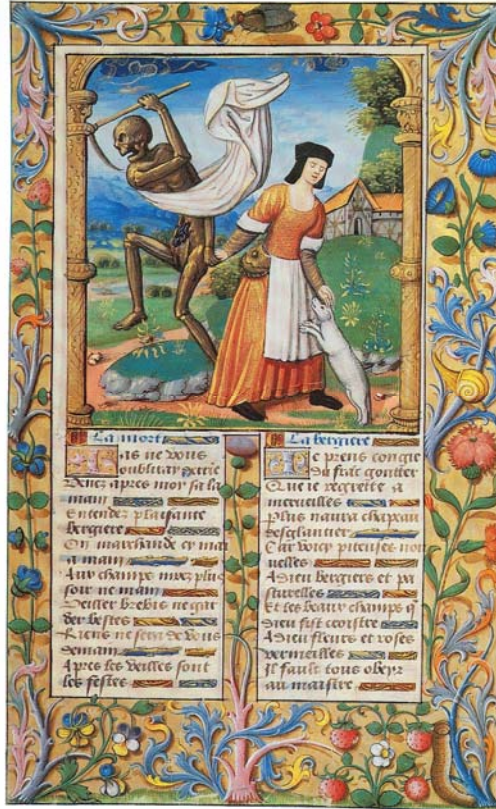 La mort
as ne vous
oubliray
venez apres moy sa la
main
Entendez plaisante
bergiere
On marchande cy main
a main
Aux champs nirez plus
soir ne main
Veiller brebis ne gar
der bestes
Riens ne sera de vous
demain
Apres les veilles sont
les festes
La bergiere
e prens congie
du franc gontier
Que ie regrete a
merveilles
Plus naura chapeau
desglantier
Car voicy piteuses nou
velles
Adieu bergiers et pa
sturelles
Et les beaux champs q
dieu fist croistre
Adieu fleurs et roses
vermeilles
Il fault tous obeyr
au maistre